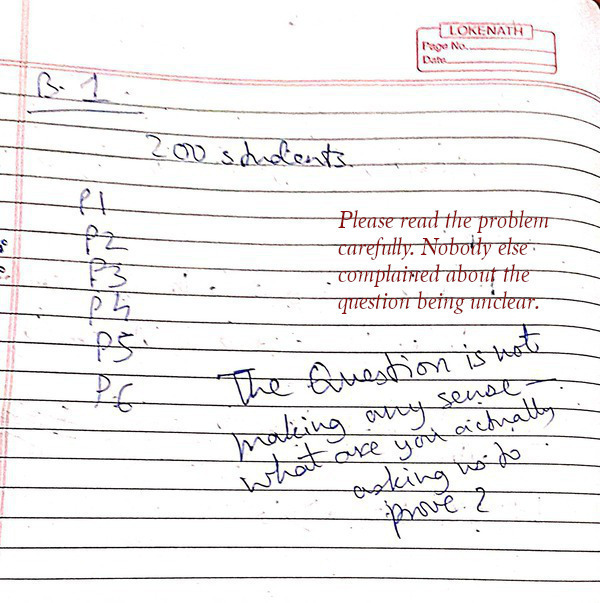 LOKENATH
Page No.
Date
B. 1.
200 students.
P1
P2
P3
P4
P5
P.6
Please read the problem
carefully. Nobody else
complained about the
question being unclear.
The Question is not
making any sense —
what are you actually
asking us to
prove ?